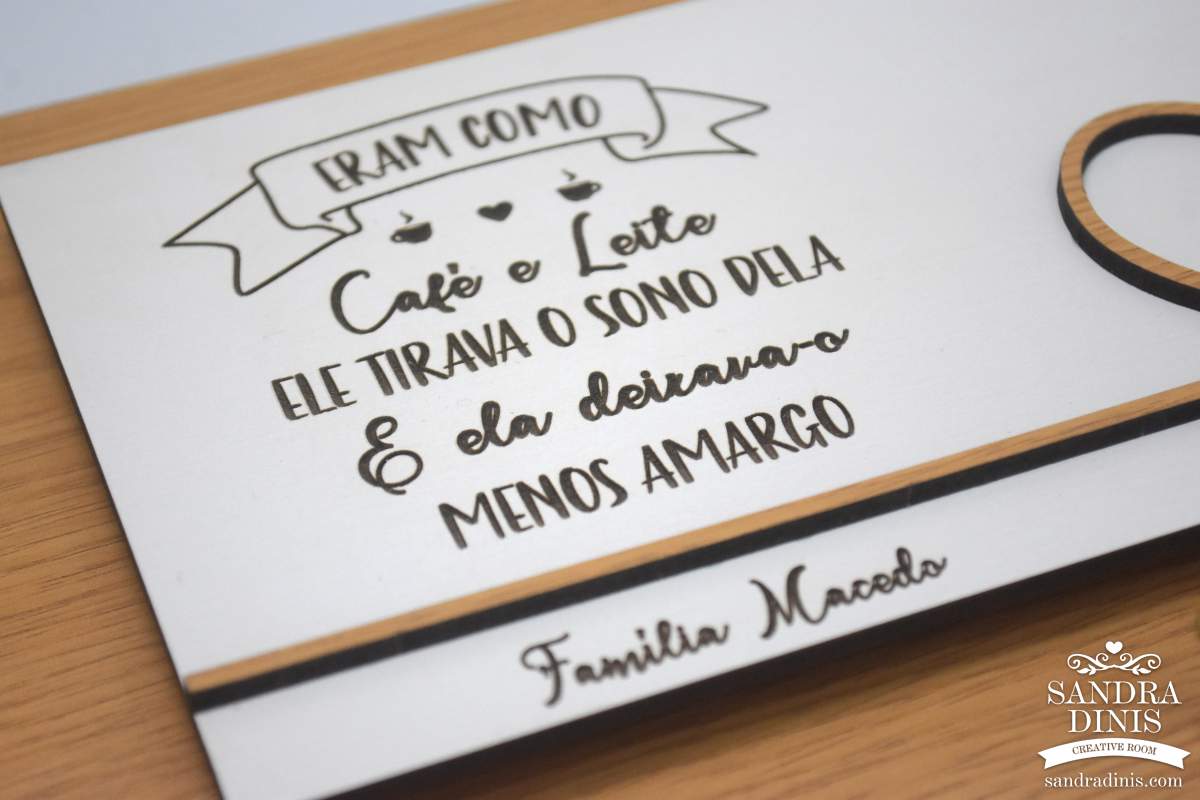 ERAM COMO
Café e Leite
ELE TIRAVA O SONO DELA
E ela deixava-o
MENOS AMARGO
Familia Macedo
SANDRA
DINIS
CREATIVE ROOM
sandradinis.com